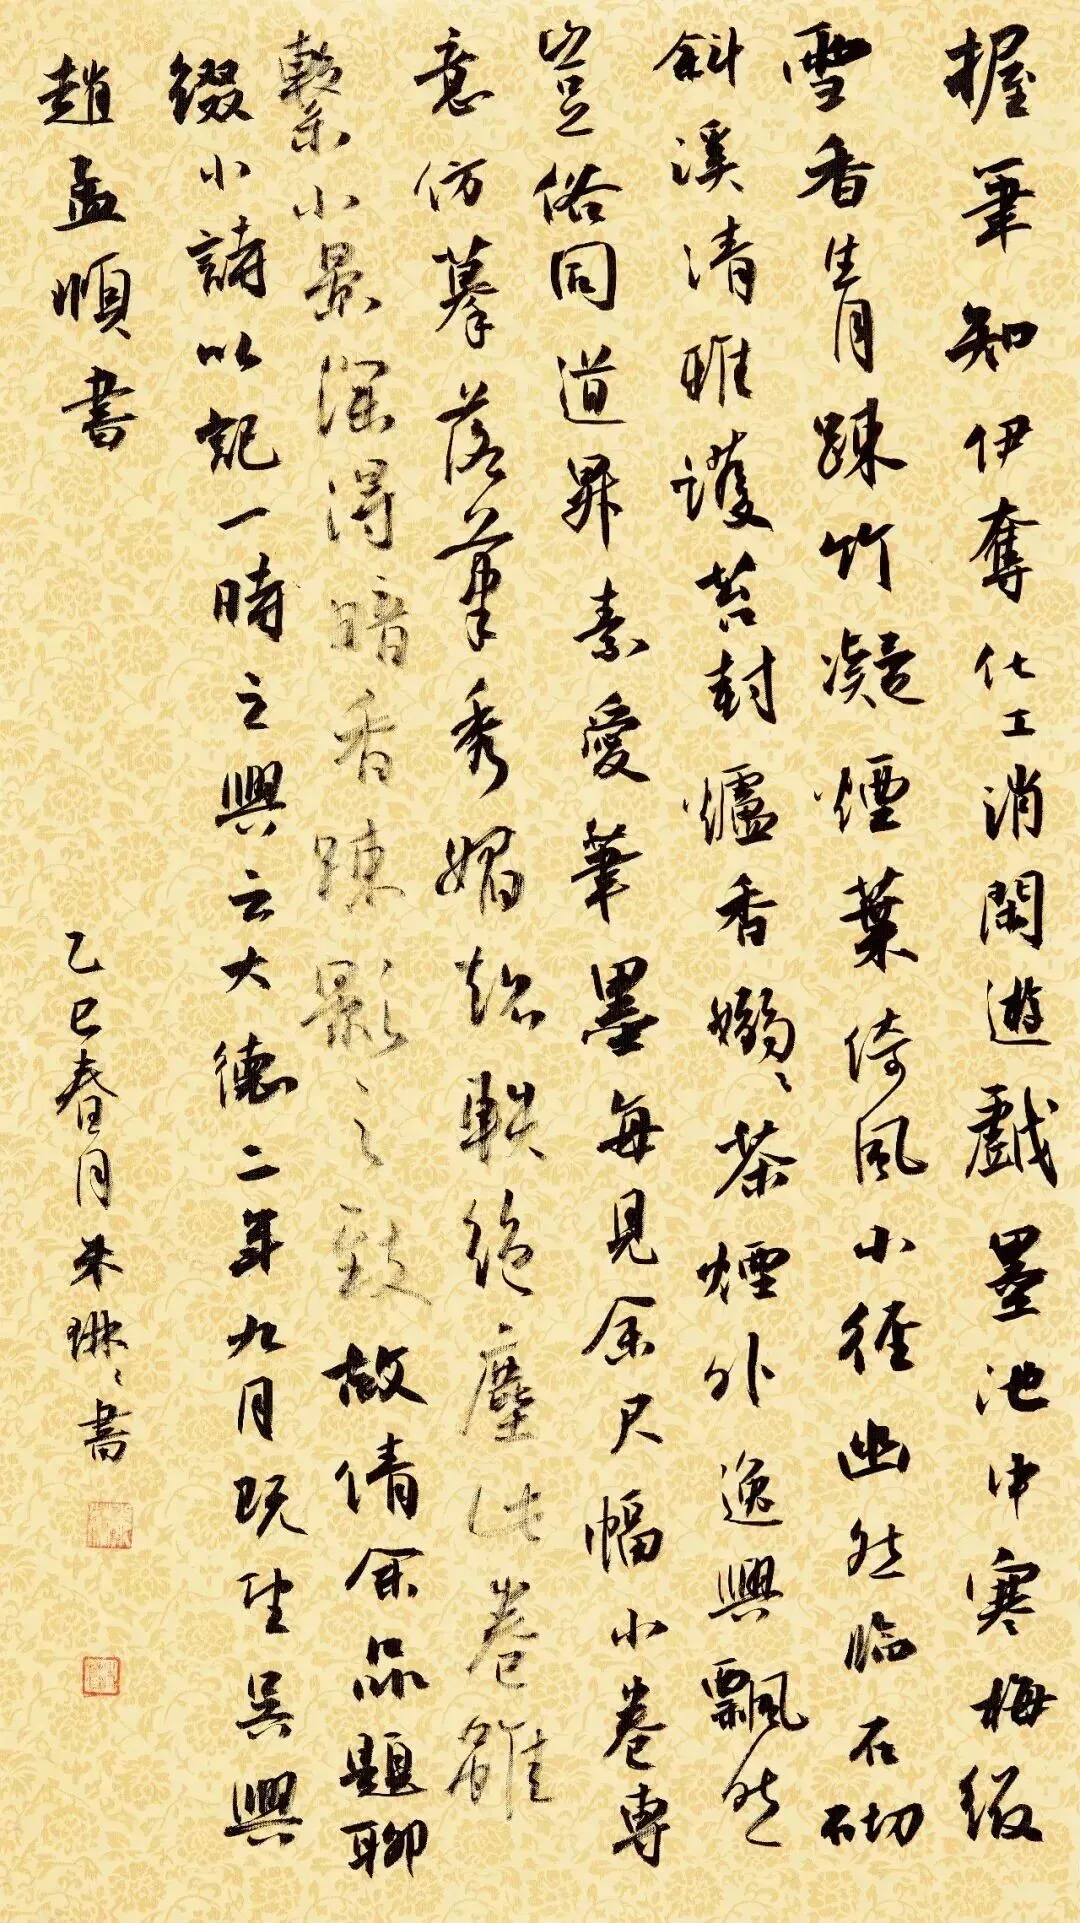 握筆知伊奪化工消閑遊戲墨池中寒梅綴
雪香生月疎竹凝煙葉倚風小徑幽然臨石砌
斜溪清雅護苔封爐香嫋〻茶煙外逸興飄然
豈俗同道昇素愛筆墨每見余尺幅小卷專
意仿摹落筆秀媚超軼絕塵此卷雖
繫小景深得暗香疎影之致故倩余品題聊
綴小詩以記一時之興云大德二年九月既望吳興
趙孟頫書
乙巳春月朱琳〻書